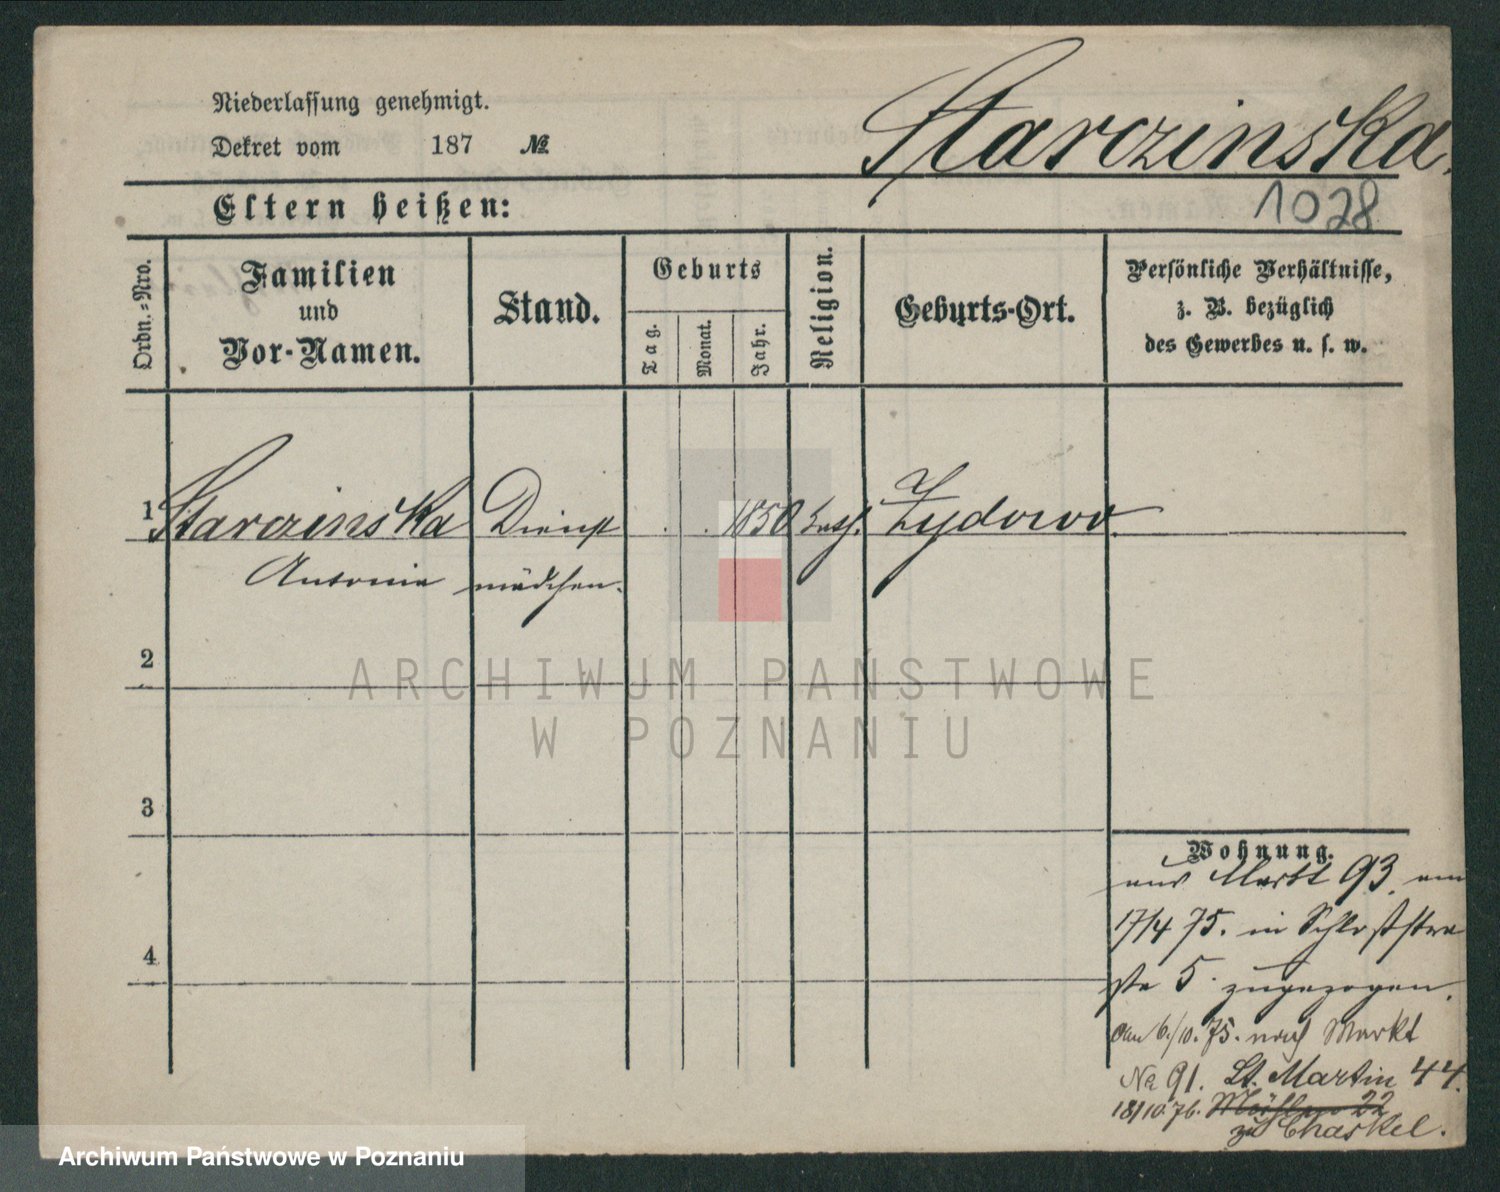 Niederlassung genehmigt.
Starczinska.
Dekret vom 187 №
1028
Eltern heißen:
Ordn.-Nro.
Familien
und
Vor-Namen.
Stand.
Geburts
Tag.
Monat.
Jahr.
Religion.
Geburts-Ort.
Persönliche Verhältnisse,
z. B. bezüglich
des Gewerbes u. s. w.
1 Starczinska Dienst . . 1850 kath. Zydowo
Antonie mädchen.
2
ARCHIWUM PAŃSTWOWE
W POZNANIU
3
Wohnung.
aus Markt 93. am
17/4 75. in Schloßstra
ße 5 zugezogen.
Am 6./10. 75. nach Markt
No 91. St. Martin 44.
18/10. 76. 22
zu Chaskel.
4
Archiwum Państwowe w Poznaniu